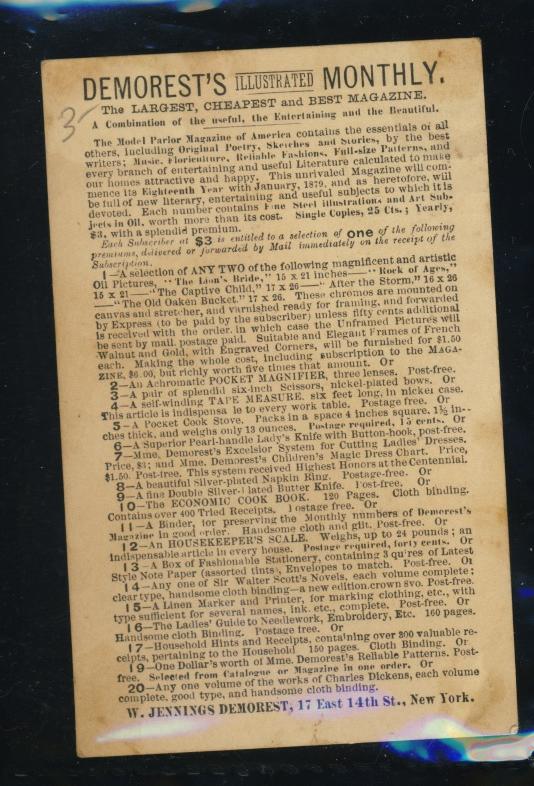 DEMOREST'S ILLUSTRATED MONTHLY.
3-
The LARGEST, CHEAPEST and BEST MAGAZINE.
A Combination of the useful, the Entertaining and the Beautiful.
The Model Parlor Magazine of America contains the essentials of all
others, including Original Poetry, Sketches and Stories, by the best
writers; Music, Floriculture, Reliable Fashions, Full-size Patterns, and
every branch of entertaining and useful Literature calculated to make
our homes attractive and happy. This unrivaled Magazine will com-
mence its Eighteenth Year with January, 1879, and as heretofore, will
be full of new literary, entertaining and useful subjects to which it is
devoted. Each number contains Fine Steel illustrations and Art Sub-
jects in Oil, worth more than its cost. Single Copies, 25 Cts.; Yearly,
$3, with a splendid premium.
Each Subscriber at $3 is entitled to a selection of one of the following
premiums, delivered or forwarded by Mail immediately on the receipt of the
Subscription.
1—A selection of ANY TWO of the following magnificent and artistic
Oil Pictures, "The Lion's Bride," 15 x 21 inches—"Rock of Ages,"
15 x 21—"The Captive Child," 17 x 26—"After the Storm," 16 x 26
—"The Old Oaken Bucket." 17 x 26. These chromos are mounted on
canvas and stretcher, and varnished ready for framing, and forwarded
by Express (to be paid by the subscriber) unless fifty cents additional
is received with the order, in which case the Unframed Pictures will
be sent by mail, postage paid. Suitable and Elegant Frames of French
Walnut and Gold, with Engraved Corners, will be furnished for $1.50
each. Making the whole cost, including subscription to the MAGA-
ZINE, $6.00, but richly worth five times that amount. Or
2—An Achromatic POCKET MAGNIFIER, three lenses. Post-free.
3—A pair of splendid six-inch Scissors, nickel-plated bows. Or
4—A self-winding TAPE MEASURE, six feet long, in nickel case.
This article is indispensable to every work table. Postage free. Or
5—A Pocket Cook Stove. Packs in a space 4 inches square, 1½ in-
ches thick, and weighs only 13 ounces. Postage required, 15 cents. Or
6—A Superior Pearl-handle Lady's Knife with Button-hook, post-free.
7—Mme. Demorest's Excelsior System for Cutting Ladies' Dresses.
Price, $3; and Mme. Demorest's Children's Magic Dress Chart. Price,
$1.50. Post-free. This system received Highest Honors at the Centennial.
8—A beautiful Silver-plated Napkin Ring. Postage-free. Or
9—A fine Double Silver-plated Butter Knife. Post-free. Or
10—The ECONOMIC COOK BOOK. 120 Pages. Cloth binding.
Contains over 400 Tried Receipts. Postage free. Or
11—A Binder, for preserving the Monthly numbers of Demorest's
Magazine in good order. Handsome cloth and gilt. Post-free. Or
12—An HOUSEKEEPER'S SCALE. Weighs, up to 24 pounds; an
indispensable article in every house. Postage required, forty cents. Or
13—A Box of Fashionable Stationery, containing 3 quires of Latest
Style Note Paper (assorted tints), Envelopes to match. Post-free. Or
14—Any one of Sir Walter Scott's Novels, each volume complete;
clear type, handsome cloth binding—a new edition, crown 8vo. Post-free.
15—A Linen Marker and Printer, for marking clothing, etc., with
type sufficient for several names, ink, etc., complete. Post-free. Or
16—The Ladies' Guide to Needlework, Embroidery, Etc. 160 pages.
Handsome cloth Binding. Postage free. Or
17—Household Hints and Receipts, containing over 300 valuable re-
ceipts, pertaining to the Household 150 pages. Cloth Binding. Or
19—One Dollar's worth of Mme. Demorest's Reliable Patterns. Post-
free. Selected from Catalogue or Magazine in one order. Or
20—Any one volume of the works of Charles Dickens, each volume
complete, good type, and handsome cloth binding.
W. JENNINGS DEMOREST, 17 East 14th St., New York.